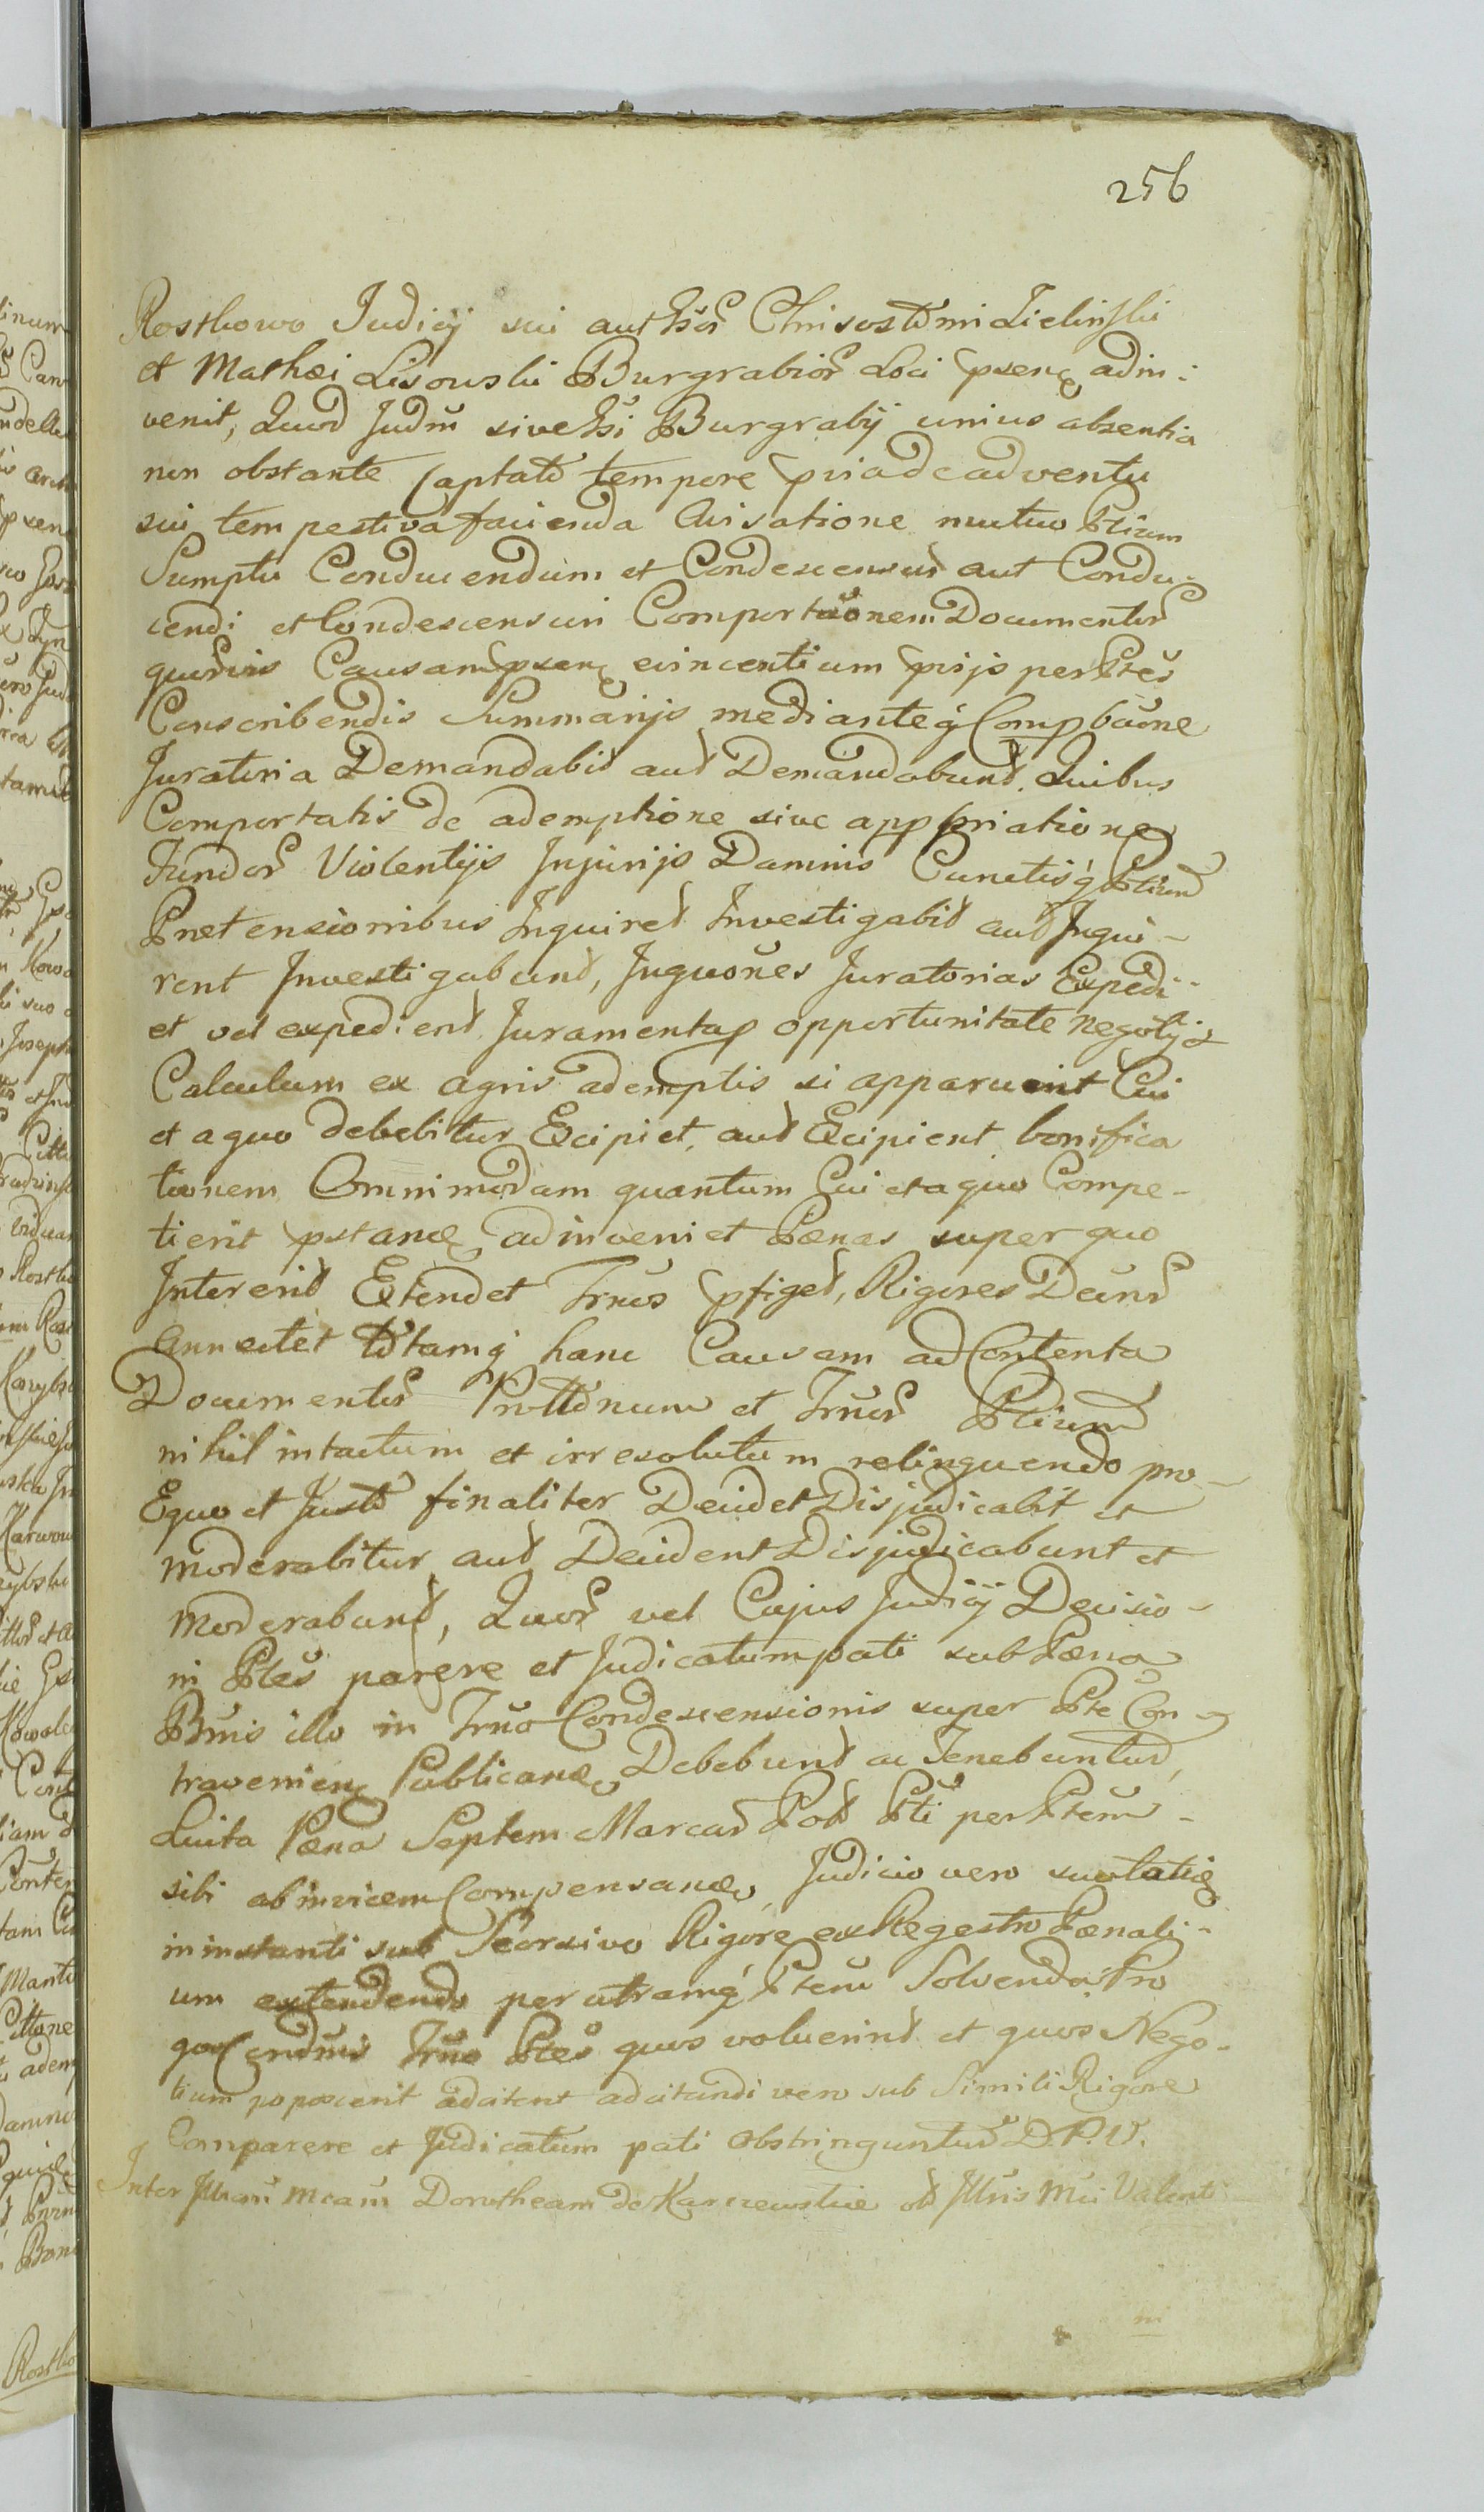 256
Rostkowo Judicij sui Chrisostomi Zielinski
et Mathæi Lisowski Burgrabior Loci præsen adin:
venit, Quod Judm sive Burgrabij unius absentia
non obstante Captato tempore priã de adventu
sui tempestiva facienda Avisatione mutuo Ptium
Sumptu Conducendum et Condescensur aut Condu-
cendi et Condescensuri Comportãonem Documentor
quorvis Causam præsen evincentium prijs per Ptes
Conscribendis Summarijs medianteq Comp bãone
Juratoria Demandabit aut Demandabunt. Quibus
Comportatis de ademptione sive appropriatione
Fundor Violentijs Injurijs Damnis Cunctisq Ptium
Prætensionibus Inquiret Investigabit aut Inqui-
rent Investigabunt, Inquones Juratorias Expedi-
et vel expedient Juramentaq opportunitate negotij
Calculum ex agris ademptis si apparuerint Cui
et a quo debebitur Excipiet, aut Excipient bonifica
tionem Omnimodam quantum Cui et a quo Compe-
tierit pstand adinveniet Pænas super quo
Intererit Extendet Trnos pfiget, Rigores Decret
Annectet totamq hanc Causam ad Contenta
Documentor Prottonum et Trnor Ptium
nihil intactum et irresolutum relinquendo pro-
Equo et Justo finaliter Decidet Disjudicabit et
moderabitur aut Decident Disjudicabunt et
moderabunt, Quor vel Cujus Judicij Decisio-
ni Ptes parere et Judicatum pati sub Pæna
Bnnis illo in Trno Condescensionis super Pte Con
travenien Publicand Debebunt ac Tenebuntur,
Luita Pæna Septem Marcar Pol Pti per Ptem-
sibi ab invicem Compensand Judicio vero
in instanti sub Seorsivo Rigore ex Regestro Pænali-
um extendendo per utramq Ptem Solvenda Pro
quo Trno Ptes quos voluerint et quos Nego-
tium poposcerit adcitent adcitandi vero sub Simili Rigore
Comparere et Judicatum pati Obstringuntur D.P.V.
Inter Mcam Dorotheam de Karczewskie olt Mci Valenti
ni